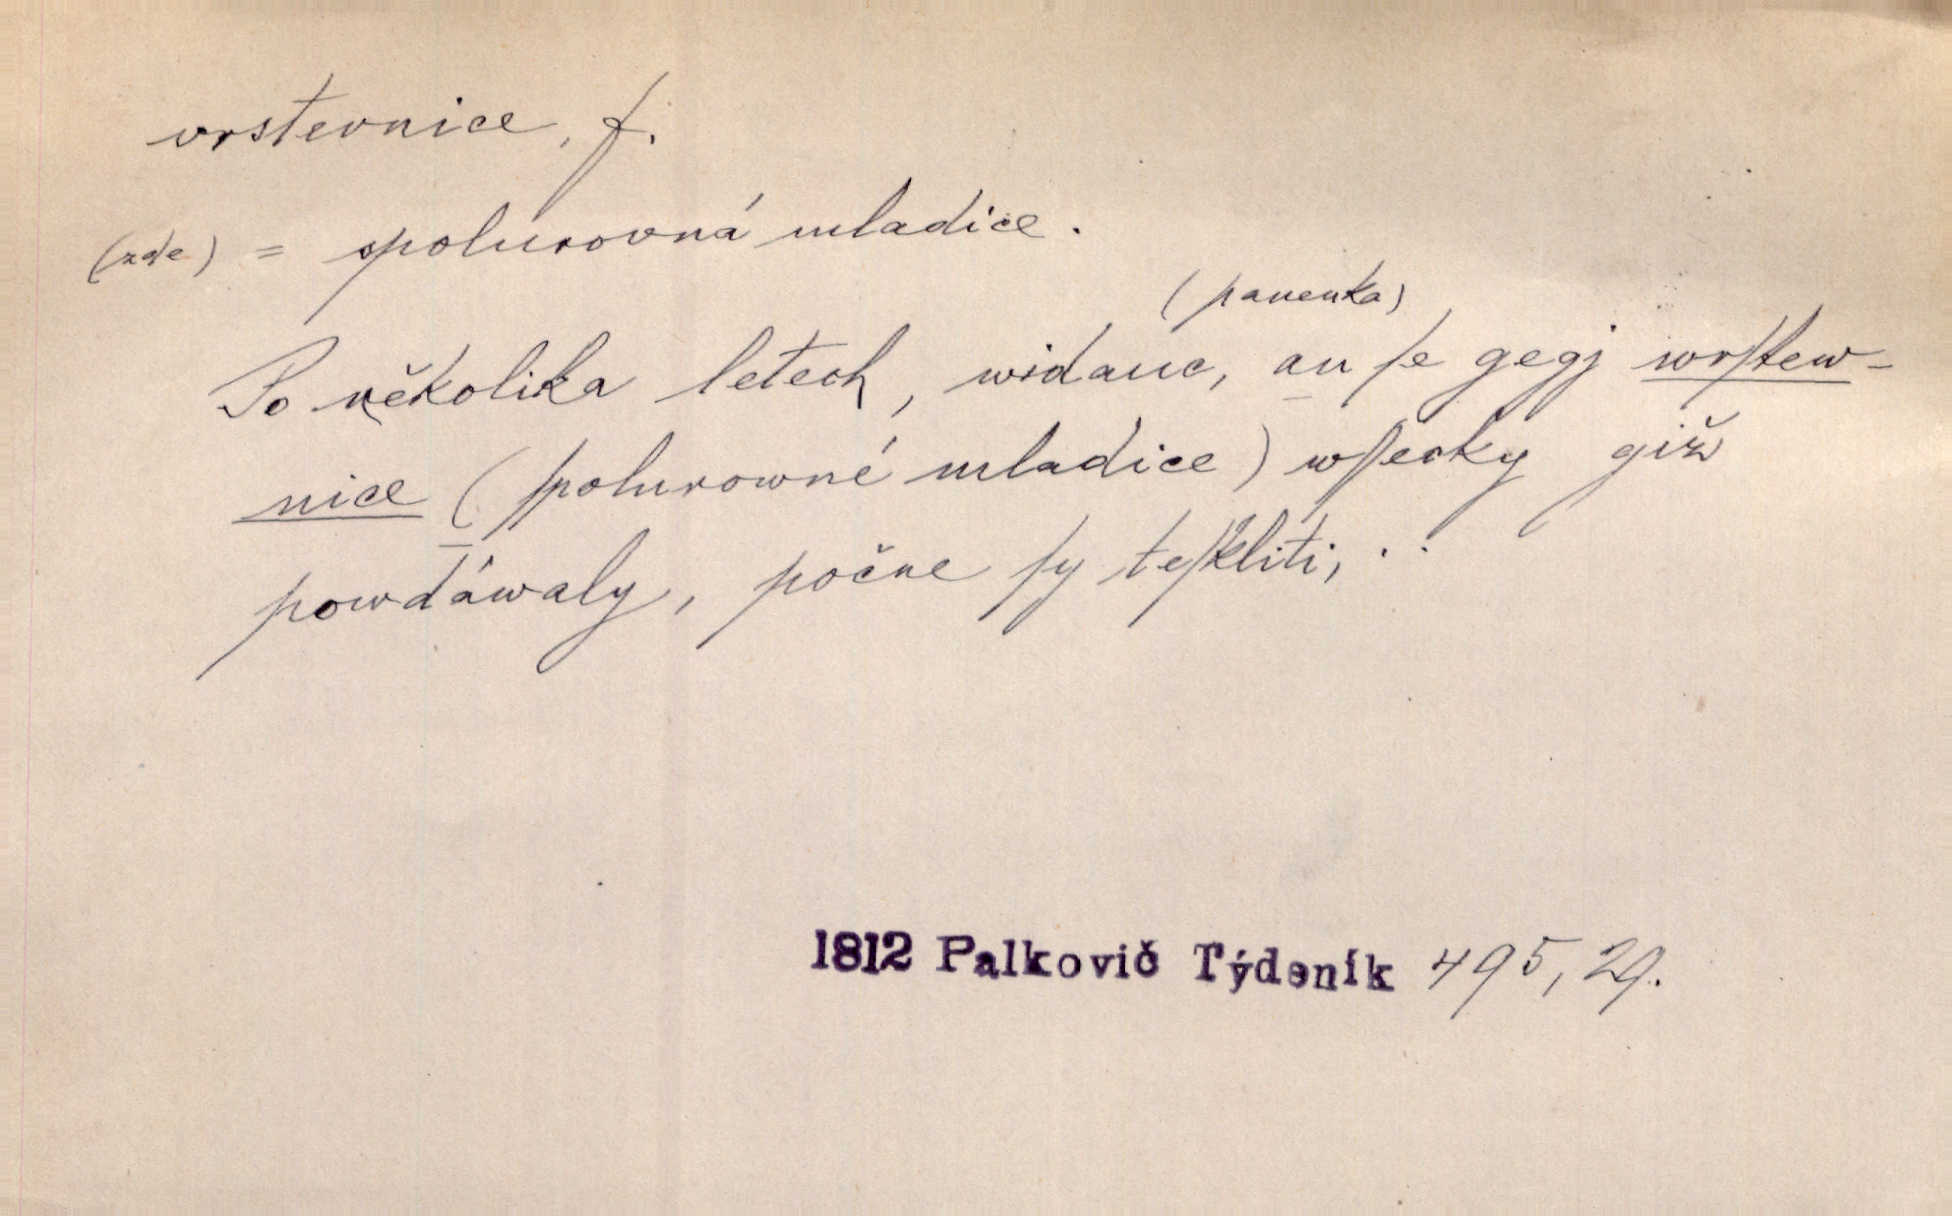 vrstevnice, f.
(zde) = spolurovná mladice.
(panenka)
Po několika letech, widauc, an ſe gegj wrſtew-
nice (ſpolurowné mladice) wſecky giž
powdáwaly, počne ſy teſkliti, . .
1812 Palkovič Týdeník 495, 29.